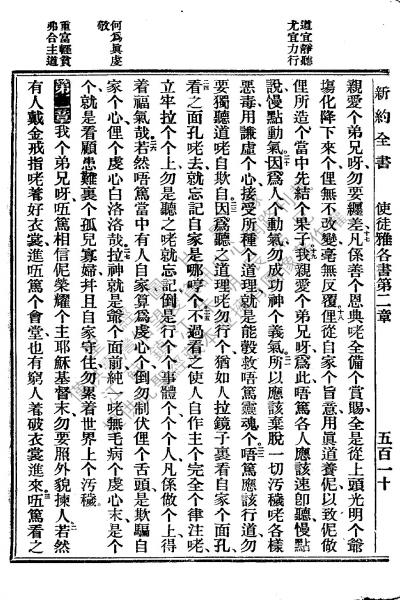 新約全書 使徒雅各書第二章 五百一十
道宜靜聽
尤宜力行
何爲眞虔
敬
重富輕貧
弗合主道
親愛个弟兄呀勿要纏差凡係善个恩典咾全備个賞賜全是從上頭光明个爺
塲化降下來个俚無不改變毫無反覆俚從自家个旨意用眞道養伲以致伲做
俚所造个當中先結个果子我親愛个弟兄呀爲此唔篤各人應該速卽聽慢點
說慢點動氣因爲人个動氣勿成功神个義氣所以應該棄脫一切汚穢咾各樣
惡毒用謙虛个心接受所種个道理就是能彀救唔篤靈魂个唔篤應該行道勿
要獨聽道咾自欺自因爲聽之道理咾勿行个猶如人拉鏡子裏看自家个面孔
看之面孔咾去就忘記自家是那哼个不過看之使人自作主个完全个律法咾
立牢拉个个上勿是聽之咾就忘記倒是行个个事體个个个人凡係做个上得
着福氣哉若然唔篤當中有人自家算爲虔心个倒勿制伏俚个舌頭是欺騙自
家个心俚个虔心白落落哉拉神就是爺个面前純一咾無毛病个虔心末是个
个就是看顧患難裏个孤兒寡婦幷且自家守住勿累着世界上个汚穢
第二章我个弟兄呀唔篤相信伲榮耀个主耶穌基督末勿要照外貌揀人若然
有人戴金戒指咾着好衣裳進唔篤个會堂也有窮人着破衣裳進來唔篤看之